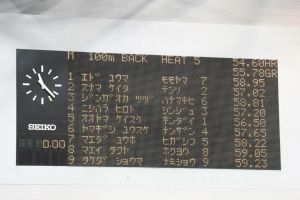 M 100m BACK HEAT 5 54.60HR
55.78GR
1 エド ユウマ モモヤマ 7 58.95
2 スナマ ケイタ テンリ 2 57.02
3 ツヅ ハナマキヒ 6 58.81
4 ニシハラ ヒロト シンシ 3 57.20
5 オオヤマ ケイスケ キンダイ 1 56.50
6 ヤマギシ ユウスケ ナンザン 4 57.65
7 マエハタ ユウヒ ヒガシフ 5 58.22
8 マエイ タクト ホクヨウ 8 59.05
9 タケダ ショウマ ナミショウ 9 59.23
SEIKO
0.00